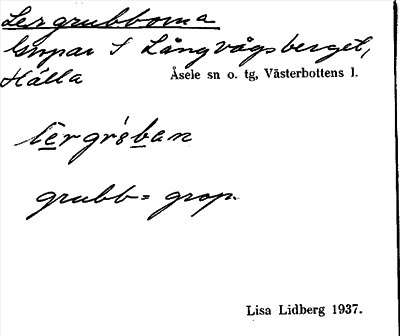 Lergrubborna
Gropar i Långvågsberget,
Hälla
Åsele sn o. tg, Västerbottens l.
grubb = grop.
Lisa Lidberg 1937.